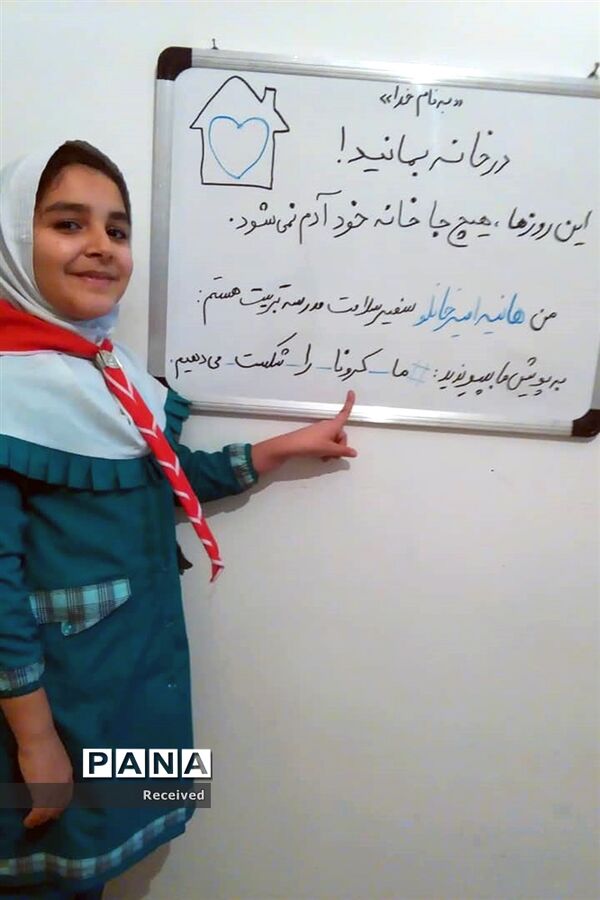 «به نام خدا»
در خانه بمانید!
این روزها، هیچ جا خانه خود آدم نمی‌شود.
من هانیه امیرخانلو سفیر سلامت مدرسه تربیت هستم:
به پویش ما بپیوندید: #ما_کرونا_را_شکست_می‌دهیم.
PANA
Received